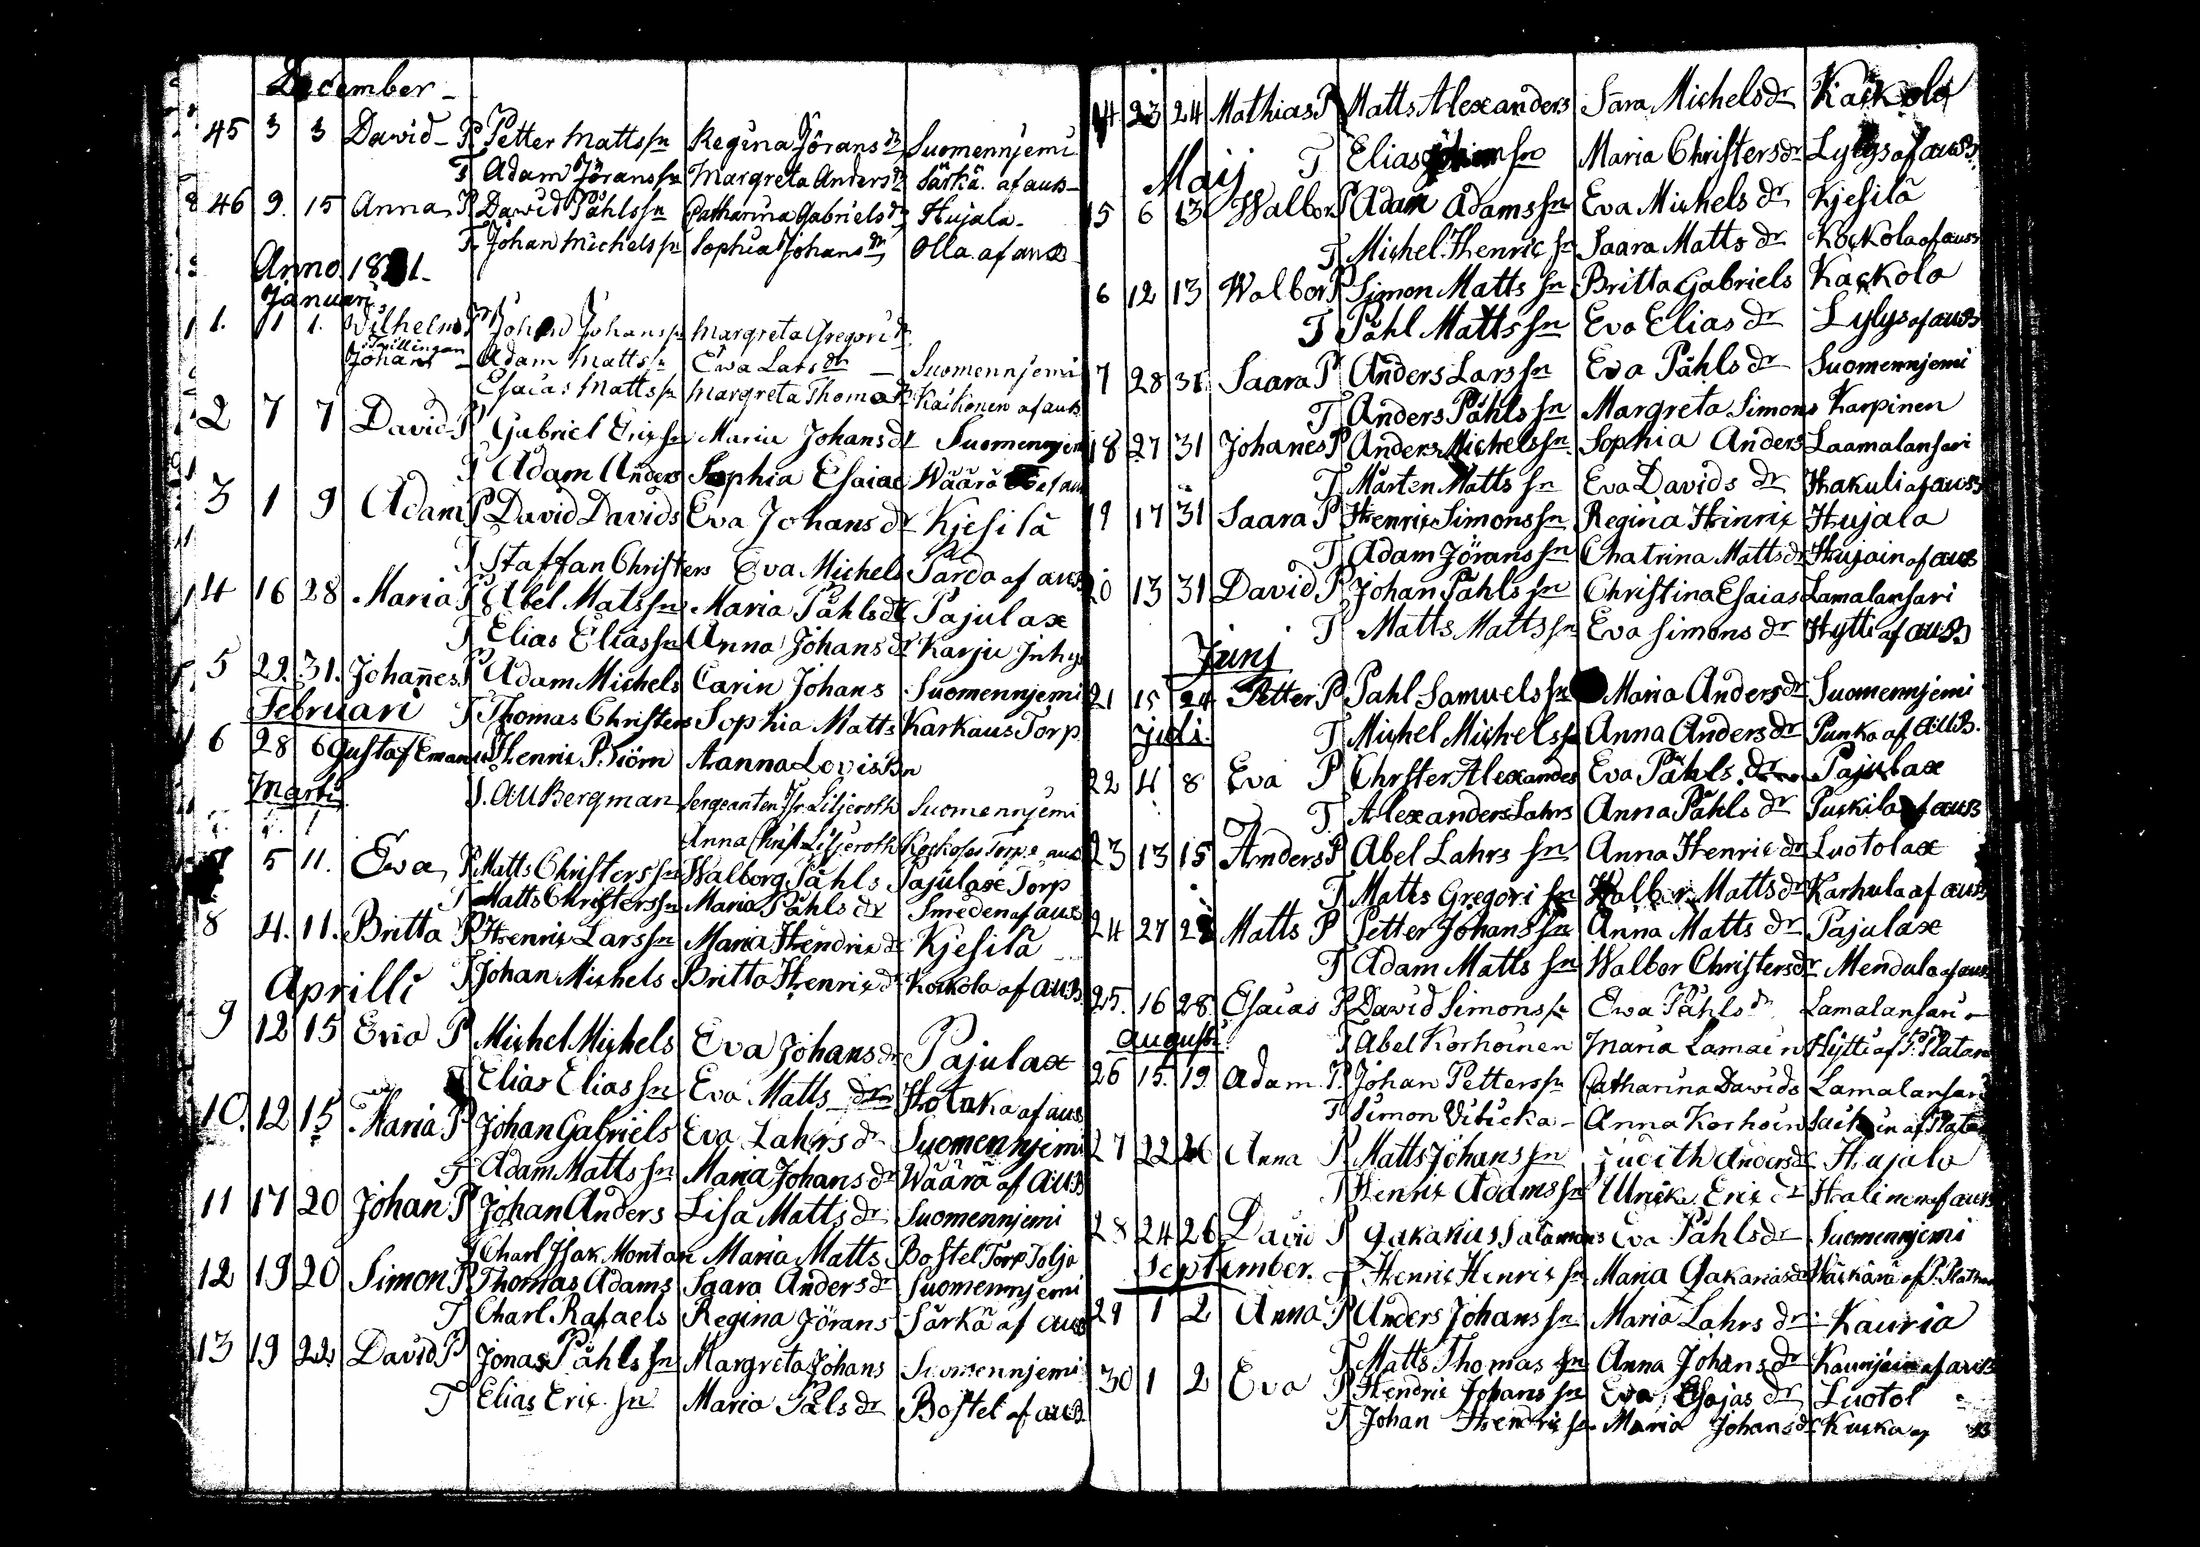 December
45 3 3 David P Petter Mattssn Regina Jörans dr Suomennjemi
T Adam Jöranssn Margreta Anders dr Särkä af aub
46 9. 15 Anna P David Påhlssn Catharina Gabriels dr Hujala
T Johan Michelssn Sophia Johans dr Olla af aub
Anno 1821
Januari
1. 1 1. Vilhelm P Johan Johanssn Margreta Gregori dr
Tvillingar
Johan Adam Mattssn Ewa Lars dr Suomennjemi
Esaias Mattssn Margreta Thoma dr Kaikonen af aub
2 7 7 David P Gabriel Ericssn Maria Johans dr Suomennjem
T Adam Anders Sophia Esaiae Wäärä af au
3 1 9 Adam P David Davids Eva Johans dr Kjesilä
T Staffan Christers Eva Michels Parda af aub
4 16 28 Maria P Abel Matssn Maria Påhls dr Pajulax
T Elias Eliassn Anna Johans dr Karju Inhys
5 29. 31. Johañes P Adam Michels Carin Johans Suomennjemi
Februari T Thomas Christers Sophia Matts Karkaus Torp
6 28 6 Gustaf Emanuel P Henric P. Biörn Hanna Lovis Bn
Marti T. A.U. Bergman Sergeanten Hr Liljeroth Suomennjemi
Anna Christ Liljeroth Torp aub
7 5 11. Ewa P Matts Christerssn Walborg Påhls Pajulax Torp
T Matts Christerssn Maria Påhls dr Smeden af aub
8 4. 11. Britta P Henric Larssn Maria Hendric dr Kjesilä
Aprilli T Johan Michels Britta Henric dr Kockola af aub
9 12 15 Eva P Michel Michels Eva Johans dr Pajulax
T Elias Elias sn Eva Matts dr Hotaka af aub
10. 12 15 Maria P Johan Gabriels Eva Lahrs dr Suomennjemi
T Adam Matts sn Maria Johans dr Wäärä af aub
11 17 20 Johan P Johan Anders Lisa Matts dr Suomennjemi
T Charl Isak Montan Maria Matts Bostel Torp Tolja
12 19 20 Simon P Thomas Adams Saara Anders dr Suomennjemi
T Charl. Rafaels Regina Jörans Särkä af aub
13 19 22 David P Jonas Påhls sn Margreta Johans Suomennjemi
T Elias Eric sn Maria Påls dr Bostel af aub
14 23 24 Mathias P Matts Alexanders Sara Michels dr Kackola
T Elias sn Maria Christers dr Lylys af aub
Maij
15 6 13 Walbor P Adam Adams sn Eva Michels dr Kjesilä
T Michel Henric sn Saara Matts dr Kockola af aub
16 12 13 Walbor P Simon Matts sn Britta Gabriels Kackola
T Påhl Matts sn Eva Elias dr Lylys af aub
17 28 31 Saara P Anders Lars sn Eva Påhls dr Suomennjemi
T Anders Påhls sn Margreta Simons Karpinen
18 27 31 Johanes P Anders Michels sn Sophia Anders Laamalansari
T Mårten Matts sn Eva Davids dr Hakuli af aub
19 17 31 Saara P Henric Simons sn Regina Hinric Hujala
T Adam Jörans sn Chatrina Matts dr Hujain af aub
20 13 31 David P Johan Påhls sn Christina Esaias Lamalansari
T Matts Matts sn Eva Simons dr Hytti af aub
Junj
21 15 24 Petter P Pahl Samuels sn Maria Anders dr Suomennjemi
Juli. T Michel Michels sn Anna Anders dr Punka af aub.
22 4 8 Eva P Chrster Alexandes Eva Påhls dr Pajulax
T Alexanders Lahrs Anna Påhls dr Puskila af aub
23 13 15 Anders P Abel Lahrs sn Anna Henric dr Luotolax
T Matts Gregori sn Walbor Matts dr Karhula af aub
24 27 28 Matts P Petter Johans sn Anna Matts dr Pajulax
T Adam Matts sn Walbor Christers dr Mendula af aub
25. 16 28 Esaias P David Simons sn Ewa Påhls dr Lamalansari
Augusti T Abel Korhoinen Maria Lamain Hytti af P. Platan
26 15. 19. Adam P. Johan Petters sn Catharina Dawids Lamalansari
T Simon Anna Korhoin af Platan
27 22 26 Anna P Matts Johans sn Judith Anders dr Hujala
T Henric Adams sn Ulrika Eric dr Halinen af aub
28 24 26 David P Gakarius Salamons Eva Påhls dr Suomennjemi
September. T Henric Henric sn Maria Gakarias dr af P. Plathan
29 1 2 Anna P Anders Johans sn Maria Lahrs dr Kauria
T Matts Thomas sn Anna Johans dr Kaunjain af aub
30 1 2 Eva P Hendric Johans sn Eva Esajas dr Luotol
T Johan Hendric sn Maria Johans dr Kuska af